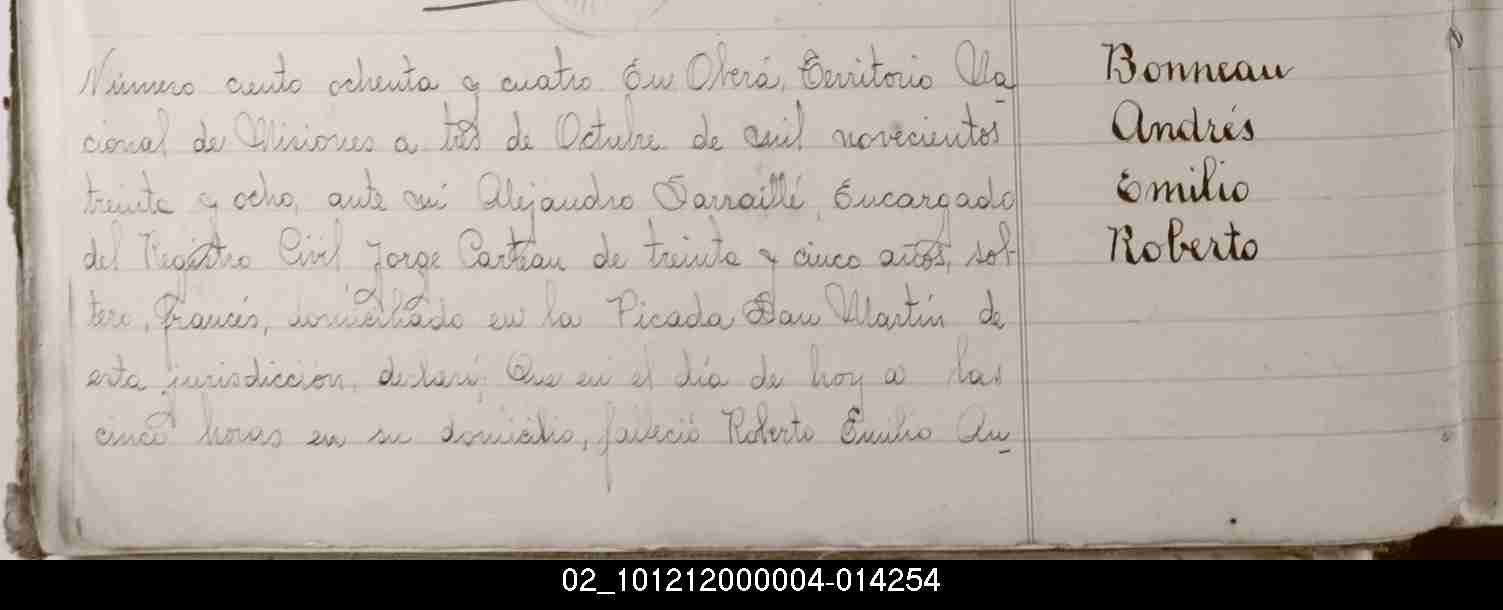 Número ciento ochenta y cuatro En Oberá, Territorio Na
cional de Misiones a tres de Octubre de mil novecientos
treinta y ocho, ante mi Alejandro Sarraillé, Encargado
del Registro Civil Jorge Carteau de treinta y cinco años, sol-
tero, francés, domiciliado en la Picada San Martín de
esta jurisdicción, declaró; Que en el día de hoy a las
cinco horas en su domicilio, falleció Roberto Emilio An
Bonneau
Andrés
Emilio
Roberto
02_101212000004-014254